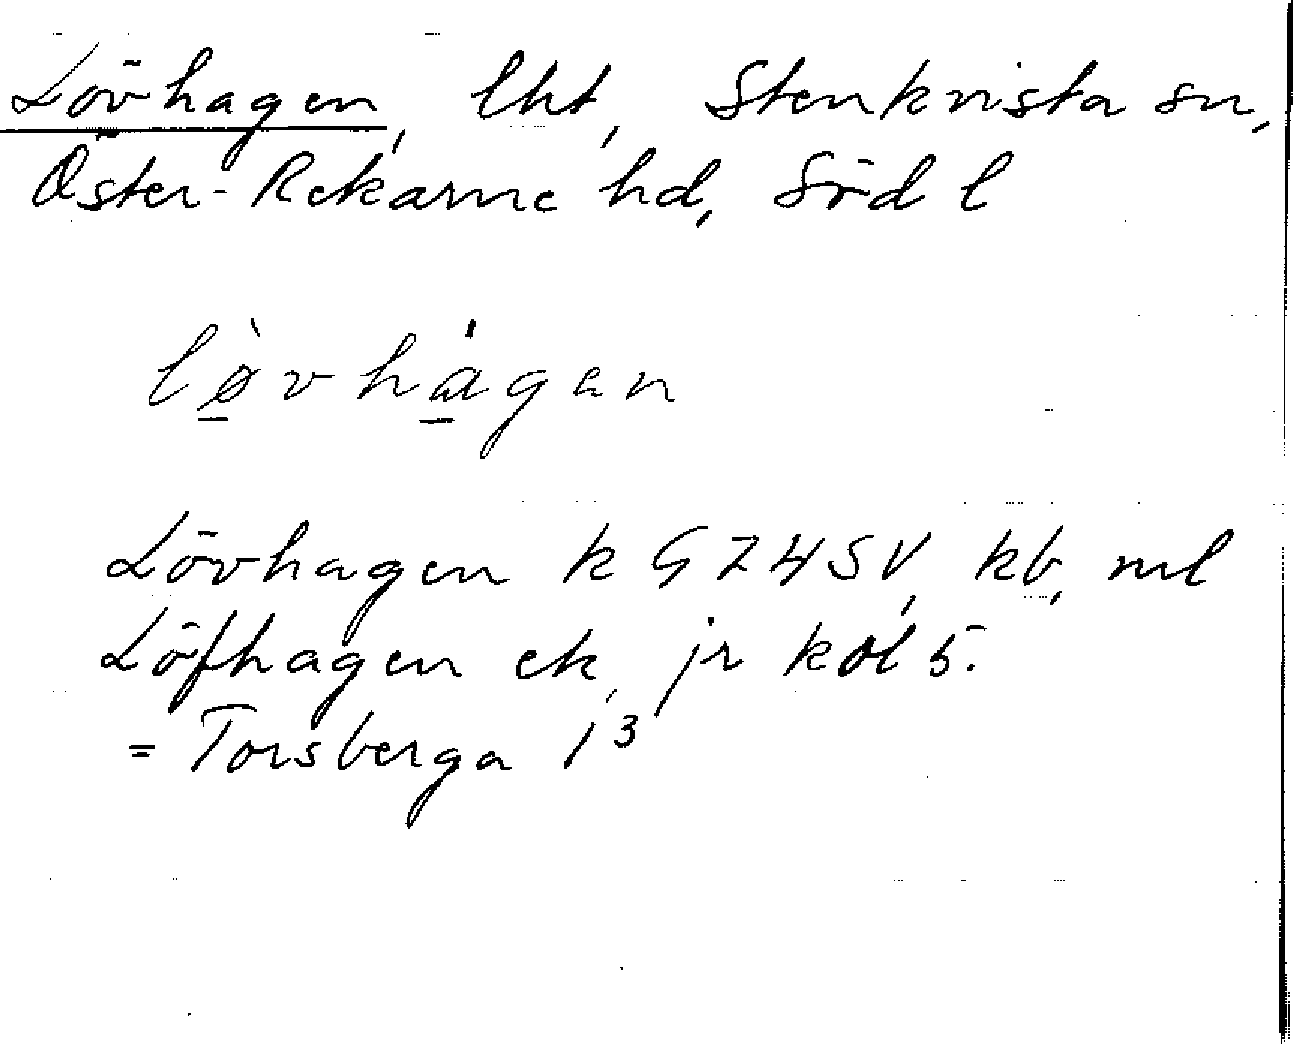 Lövhagen, lht, Stenkvista sn,
Öster-Rekarne hd, Söd l
lø̱̀vhá̱gen
Lövhagen k GZ4SV, kb, ml
Löfhagen ek, jr kol 5.
= Torsberga 1³